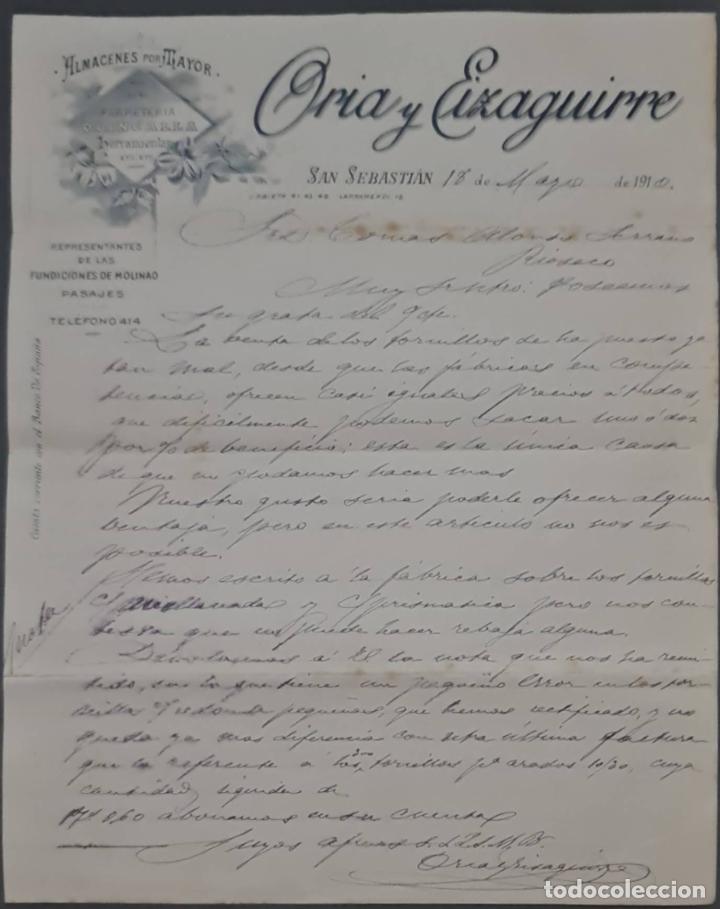 ALMACENES POR MAYOR.
FERRETERIA
QUINCALLA
Herramientas
ETC. ETC.
Oria y Eizaguirre
SAN SEBASTIÁN 18 de Mayo de 1910.
REPRESENTANTES
DE LAS
FUNDICIONES DE MOLINAO
PASAJES
TELÉFONO 414
Cuenta corriente en el Banco De España
Tomas Alonso Serrano
Rioseco
Muy Sr ntro: Poseemos
Su grata del 9 cte.
La venta de los tornillos se ha puesto ya
tan mal, desde que las fábricas en compe-
tencia, ofrecen casi iguales precios á todos,
que dificilmente podemos sacar uno ó dos
por % de beneficio; esta es la única causa
de que no podamos hacer mas
Nuestro gusto seria poderle ofrecer alguna
ventaja, pero en este articulo no nos es
posible.
Hemos escrito á la fábrica sobre los tornillos
C/ avellanada y C/ prismatica pero nos con-
testa que no puede hacer rebaja alguna.
Devolvemos á V. la nota que nos ha remi-
tido, en la que tiene un pequeño error en los tor-
nillos C/ redonda pequeños, que hemos rectificado, y no
queda ya mas diferencia con ntra última factura
que la referente á los tornillos pa arados 10/30, cuya
cantidad liquida de
860 abonamos en su cuenta
Suyos afmos S.S. Q. S. M. B.
Oria y Eizaguirre
todocoleccion.net